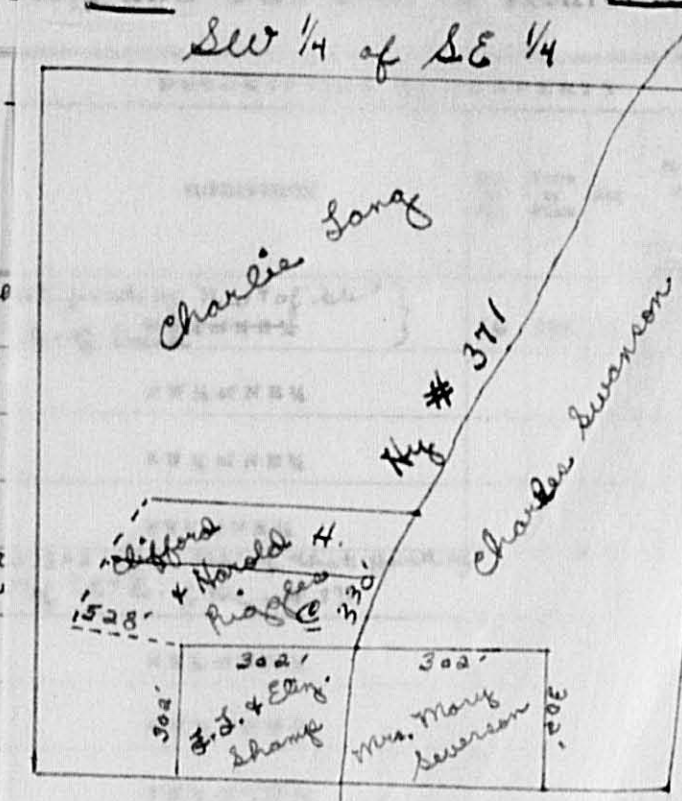 SW 1/4 of SE 1/4
Charlie Lang
Hy # 371
Charles Swanson
Clifford
& Harold H.
Riggles
C 330'
1528'
302'
302'
302'
302'
& Eliz.
Shamp
Mrs. Mary
Severson